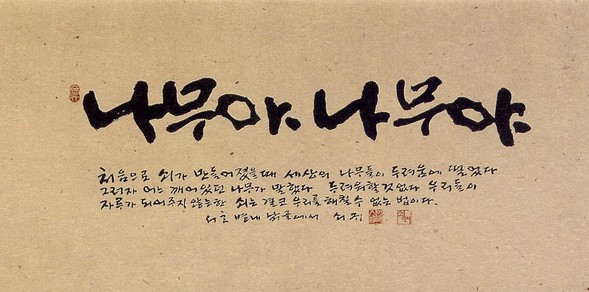 나무야 나무야
처음으로 쇠가 만들어졌을때 세상의 나무들이 두려움에 떨었다
그러자 어느 깨어있던 나무가 말했다 두려워할것없다 우리들이
자루가 되어주지 않는한 쇠는 결코 우리를 해칠수 없는 법이다.
서호 에서 쇠귀